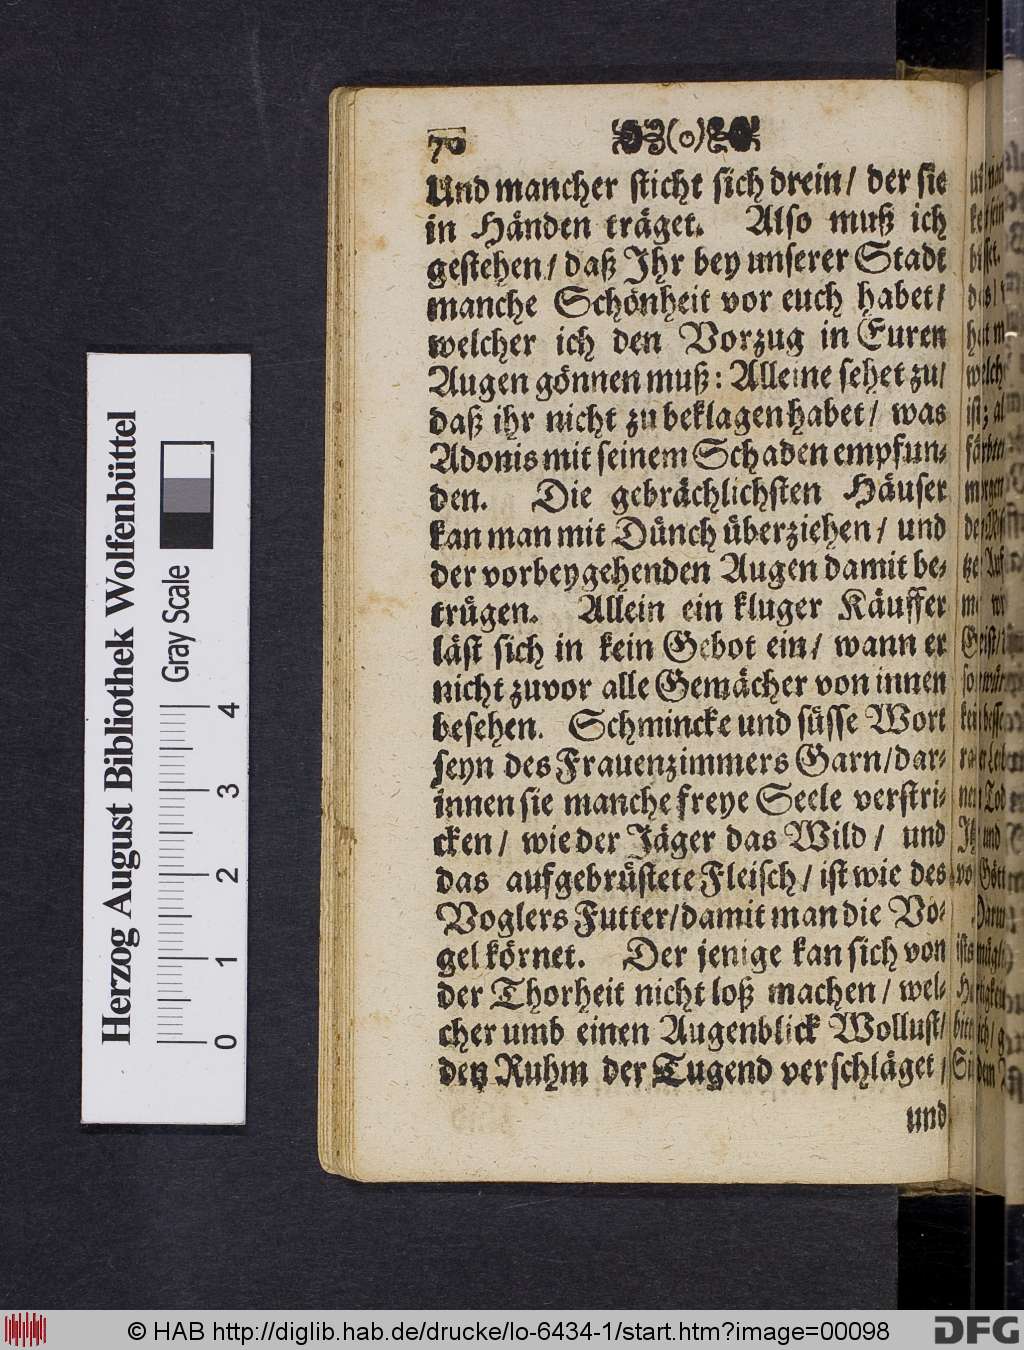 70 (o)
Und mancher sticht sich drein/ der sie
in Händen träget. Also muß ich
gestehen/ daß Ihr bey unserer Stadt
manche Schönheit vor euch habet/
welcher ich den Vorzug in Euren
Augen gönnen muß: Alleine sehet zu/
daß ihr nicht zu beklagen habet/ was
Adonis mit seinem Schaden empfun-
den. Die gebrächlichsten Häuser
kan man mit Dünch überziehen/ und
der vorbeygehenden Augen damit be-
trügen. Allein ein kluger Käuffer
läst sich in kein Gebot ein/ wann er
nicht zuvor alle Gemächer von innen
besehen. Schmincke und süsse Wort
seyn des Frauenzimmers Garn/ dar-
innen sie manche freye Seele verstri-
cken/ wie der Jäger das Wild/ und
das aufgebrüstete Fleisch/ ist wie des
Voglers Futter/ damit man die Vö-
gel körnet. Der jenige kan sich von
der Thorheit nicht loß machen/ wel-
cher umb einen Augenblick Wollust/
den Ruhm der Tugend verschläget/
und
Herzog August Bibliothek Wolfenbüttel
Gray Scale
0 1 2 3 4
© HAB http://diglib.hab.de/drucke/lo-6434-1/start.htm?image=00098
DFG